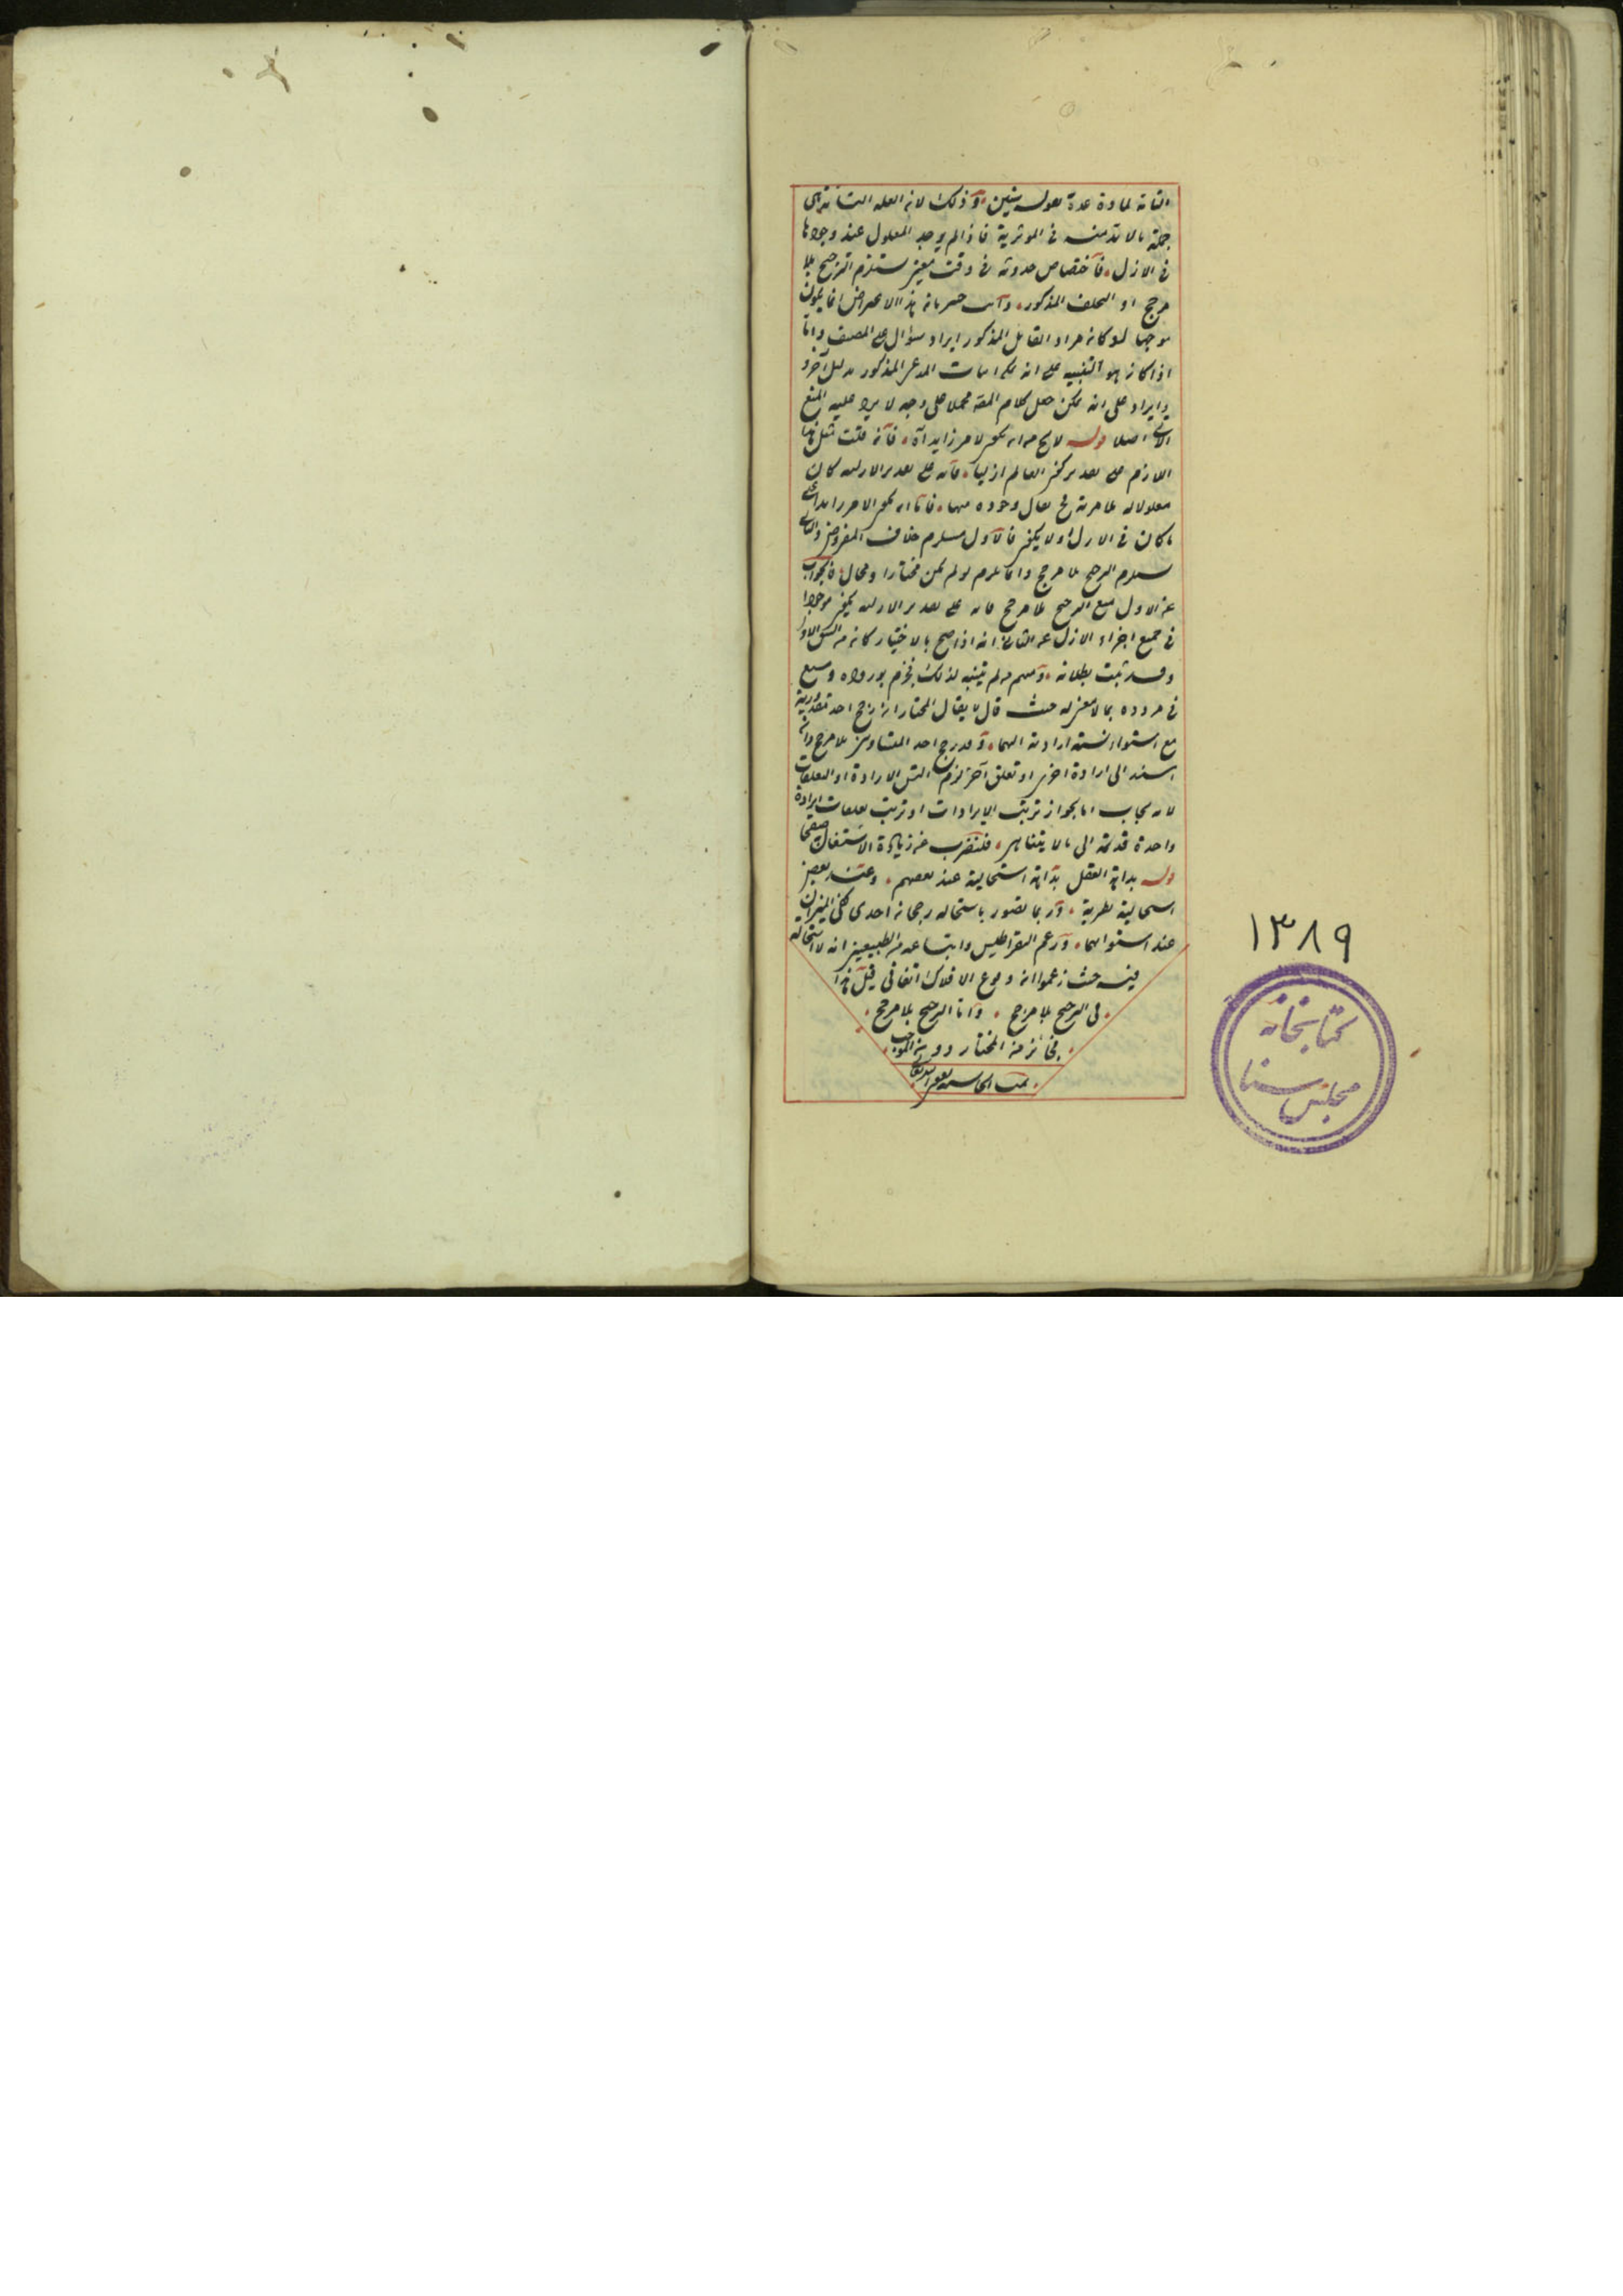 التامة لمادة عدة بقوله وذلك لان العلة التامة هى
جملة ما لا بد منه فى المؤثرية فاذا لم يوجد المعلول عند وجودها
فى الازل فاختصاص حدوثه فى وقت معين يستلزم الترجيح بلا
مرجح او التخلف المذكور وانت خبير بان هذا الاعتراض انما يكون
موجها لو كان مراد القائل المذكور ايراد سؤال على المصنف واما
اذا كان هو التنبيه على انه يمكن اثبات المدعى المذكور بدليل آخر
وايراد على انه يمكن حمل كلام المص محملا على وجه لا يرد عليه المنع
اصلا قوله لا يخ من ان يكون لامر زايد آه فان قلت مثل هذا
اللازم على تقدير كون العالم ازليا فانه على تقدير الازلية كان
معلولا لعلة تامة يقال وجوده منها فاما ان يكون لامر زايد على
ما كان فى الازل او لا يكون فالاول يستلزم خلاف المفروض والثانى
يستلزم الترجيح بلا مرجح وانما يلزم لو لم يكن مختارا ومحال فالجواب
عن الاول منع الترجيح بلا مرجح فانه على تقدير الازلية يكون موجودا
فى جميع اجزاء الازل عن الثانى انه اذا صح بالاختيار كان من الشق الاول
وقد ثبت بطلانه ومنهم من لم يتنبه لذلك فجزم بوروده وسع
فى مردوده بما لا معنى له حيث قال لا يقال المختار ان رجح احد مقدوريه
مع استواء نسبة ارادته اليهما فقد رجح احد المتساويين بلا مرجح وان
اسند الى ارادة اخرى او تعلق آخر لزم التس الارادة او التعلقات
لانه يجاب اما بجواز ترتب الارادات او ترتب تعلقات ارادة
واحدة قديمة الى ما لا يتناهى فلنضرب عن زيادة الاشتغال صفحا
قوله بداهة العقل بداهة استحالته عند بعضهم وعند بعض
استحالته نظرية وربما تصور باستحالة رجحان احدى كفتى الميزان
عند استوائهما وزعم البقراطيس واتباعه من الطبيعيين انه لا استحالة
فيه حيث زعموا ان وقوع الافلاك اتفاقى قيل هذا
فى الترجح بلا مرجح واما الترجيح بلا مرجح
فجائز من المختار دون الموجب
تمت الحاشية بعون
١٣٨٩
كتابخانه
مجلس سنا